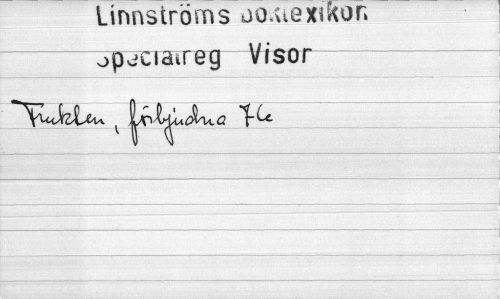 Linnströms boklexikon
Specialreg Visor
Frukten, förbjudna 76